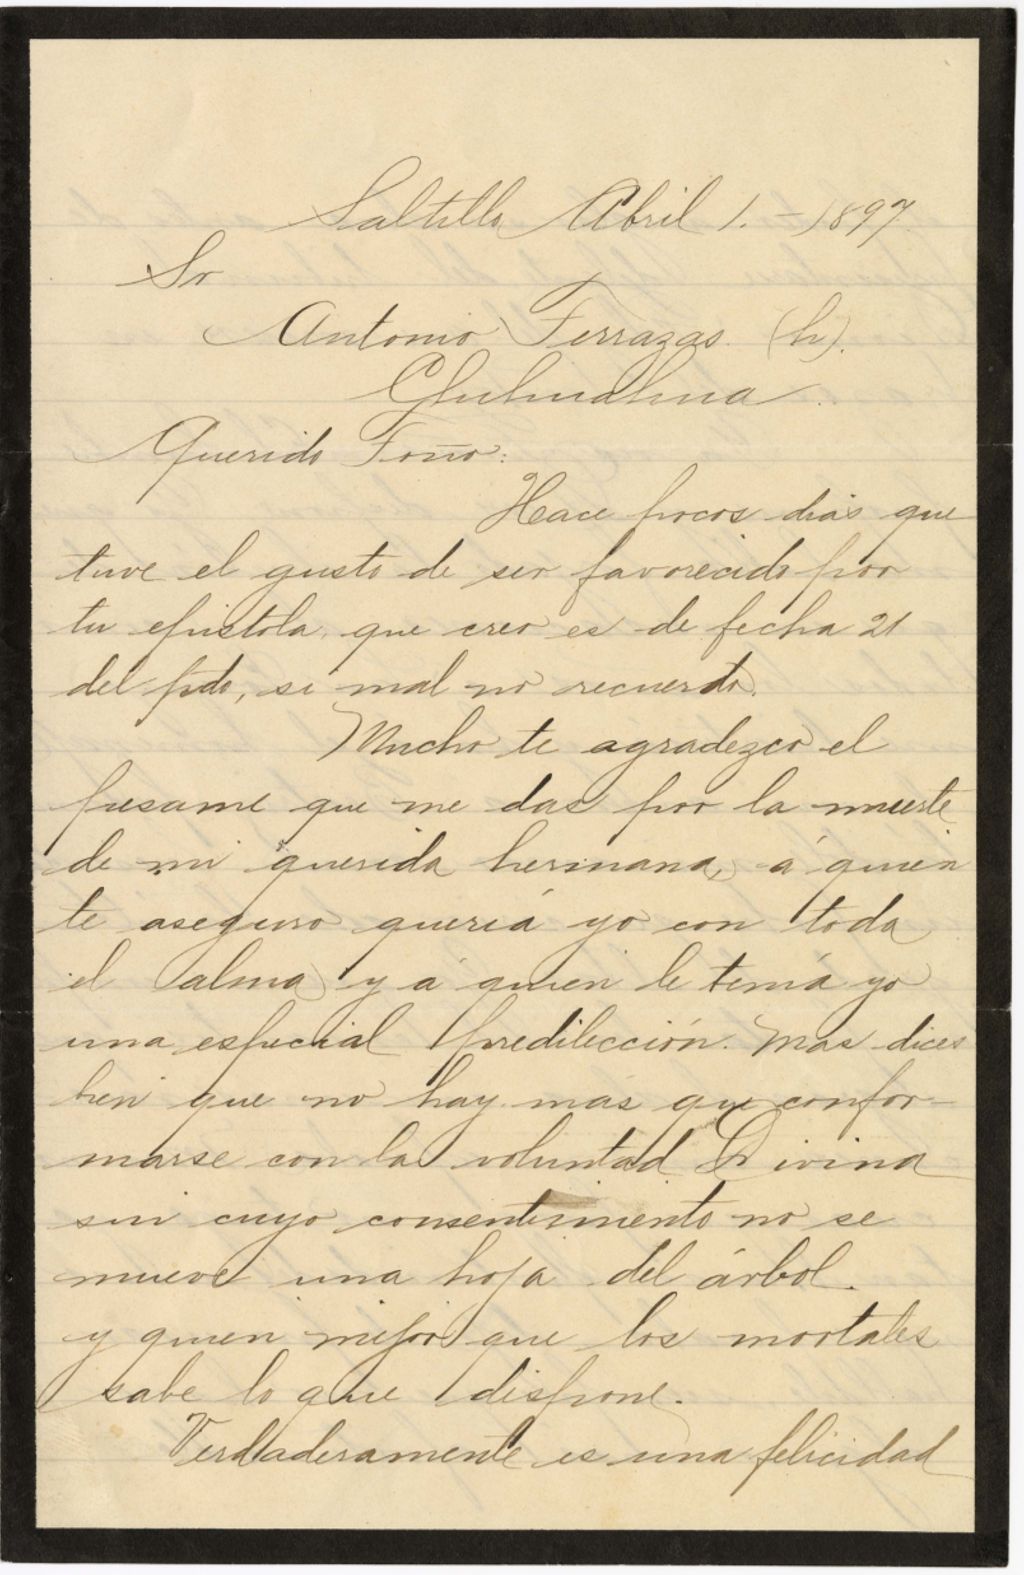 Saltillo Abril 1. - 1897
Sr
Antonio Terrazas (h).
Chihuahua.
Querido Toño:
Hace pocos días que
tuve el gusto de ser favorecido por
tu epistola, que creo es de fecha 21
del ppdo, si mal no recuerdo.
Mucho te agradezco el
pesame que me das por la muerte
de mi querida hermana, á quien
te aseguro quería yo con toda
el alma y á quien le tenía yo
una especial predilección. Mas dices
bien que no hay más que confor-
marse con la voluntad Divina
sin cuyo consentimiento no se
mueve una hoja del árbol.
y quien mejor que los mortales
sabe lo que dispone.
Verdaderamente es una felicidad